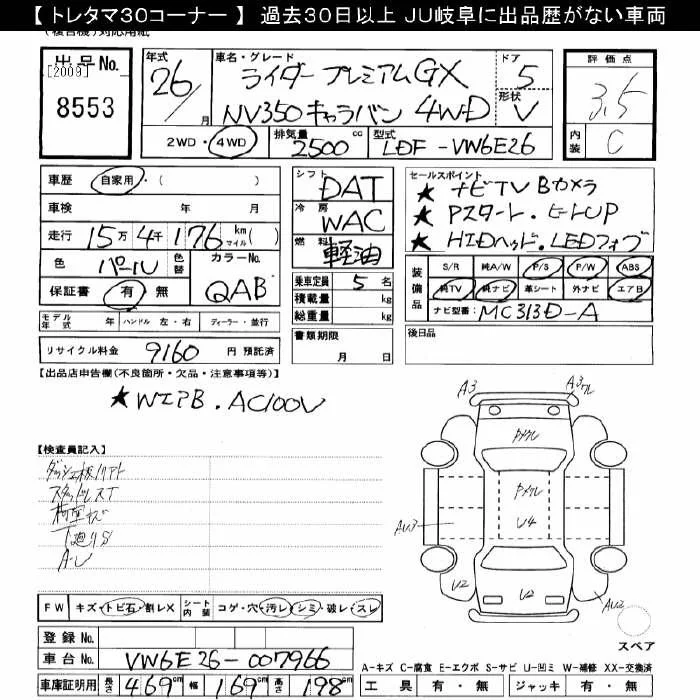 【トレタマ30コーナー】 過去30日以上 JU岐阜に出品歴がない車両
(複合機)対応用紙
出品No.
[2009]
8553
年式 26/ 月
車名・グレード
ライダー プレミアムGX
NV350キャラバン 4WD
ドア 5
形状 V
評価点
3.5
内装 C
2WD・4WD
排気量 2500 cc
型式 LDF-VW6E26
車歴 自家用・( )
車検 年 月
走行 15万 4千 176 km マイル( )
色 パール 色替
カラーNo. QAB
保証書 有・無
シフト DAT
冷房 WAC
燃料 軽油
乗車定員 5 名
積載量 kg
総重量 kg
セールスポイント
★ ナビTV Bカメラ
★ Pスタート・ヒートUP
★ HIDヘッド・LEDフォグ
装備品
S/R 純A/W P/S P/W ABS
純TV 純ナビ 革シート 外ナビ エアB
ナビ型番: MC313D-A
モデル年式 年 ハンドル 左・右 ディーラー・並行
リサイクル料金 9160 円 預託済
書類期限
月 日
後日品
【出品店申告欄(不良箇所・欠品・注意事項等)】
★ WエアB. AC100V
【検査員記入】
スタッドレスT
A-U
A3
A3 ワレ
Pメクレ
Pメクレ
U4
AU3
U2
U2
AU2
スペア
FW キズ・トビ石・割レX シート内装 コゲ・穴・汚レ・シミ・破レ・スレ
登録No.
車台No. VW6E26-007966
車庫証明用 長さ 469cm 幅 169cm 高さ 198cm
A-キズ C-腐食 E-エクボ S-サビ U-凹ミ W-補修 XX-交換済
工具 有・無 ジャッキ 有・無